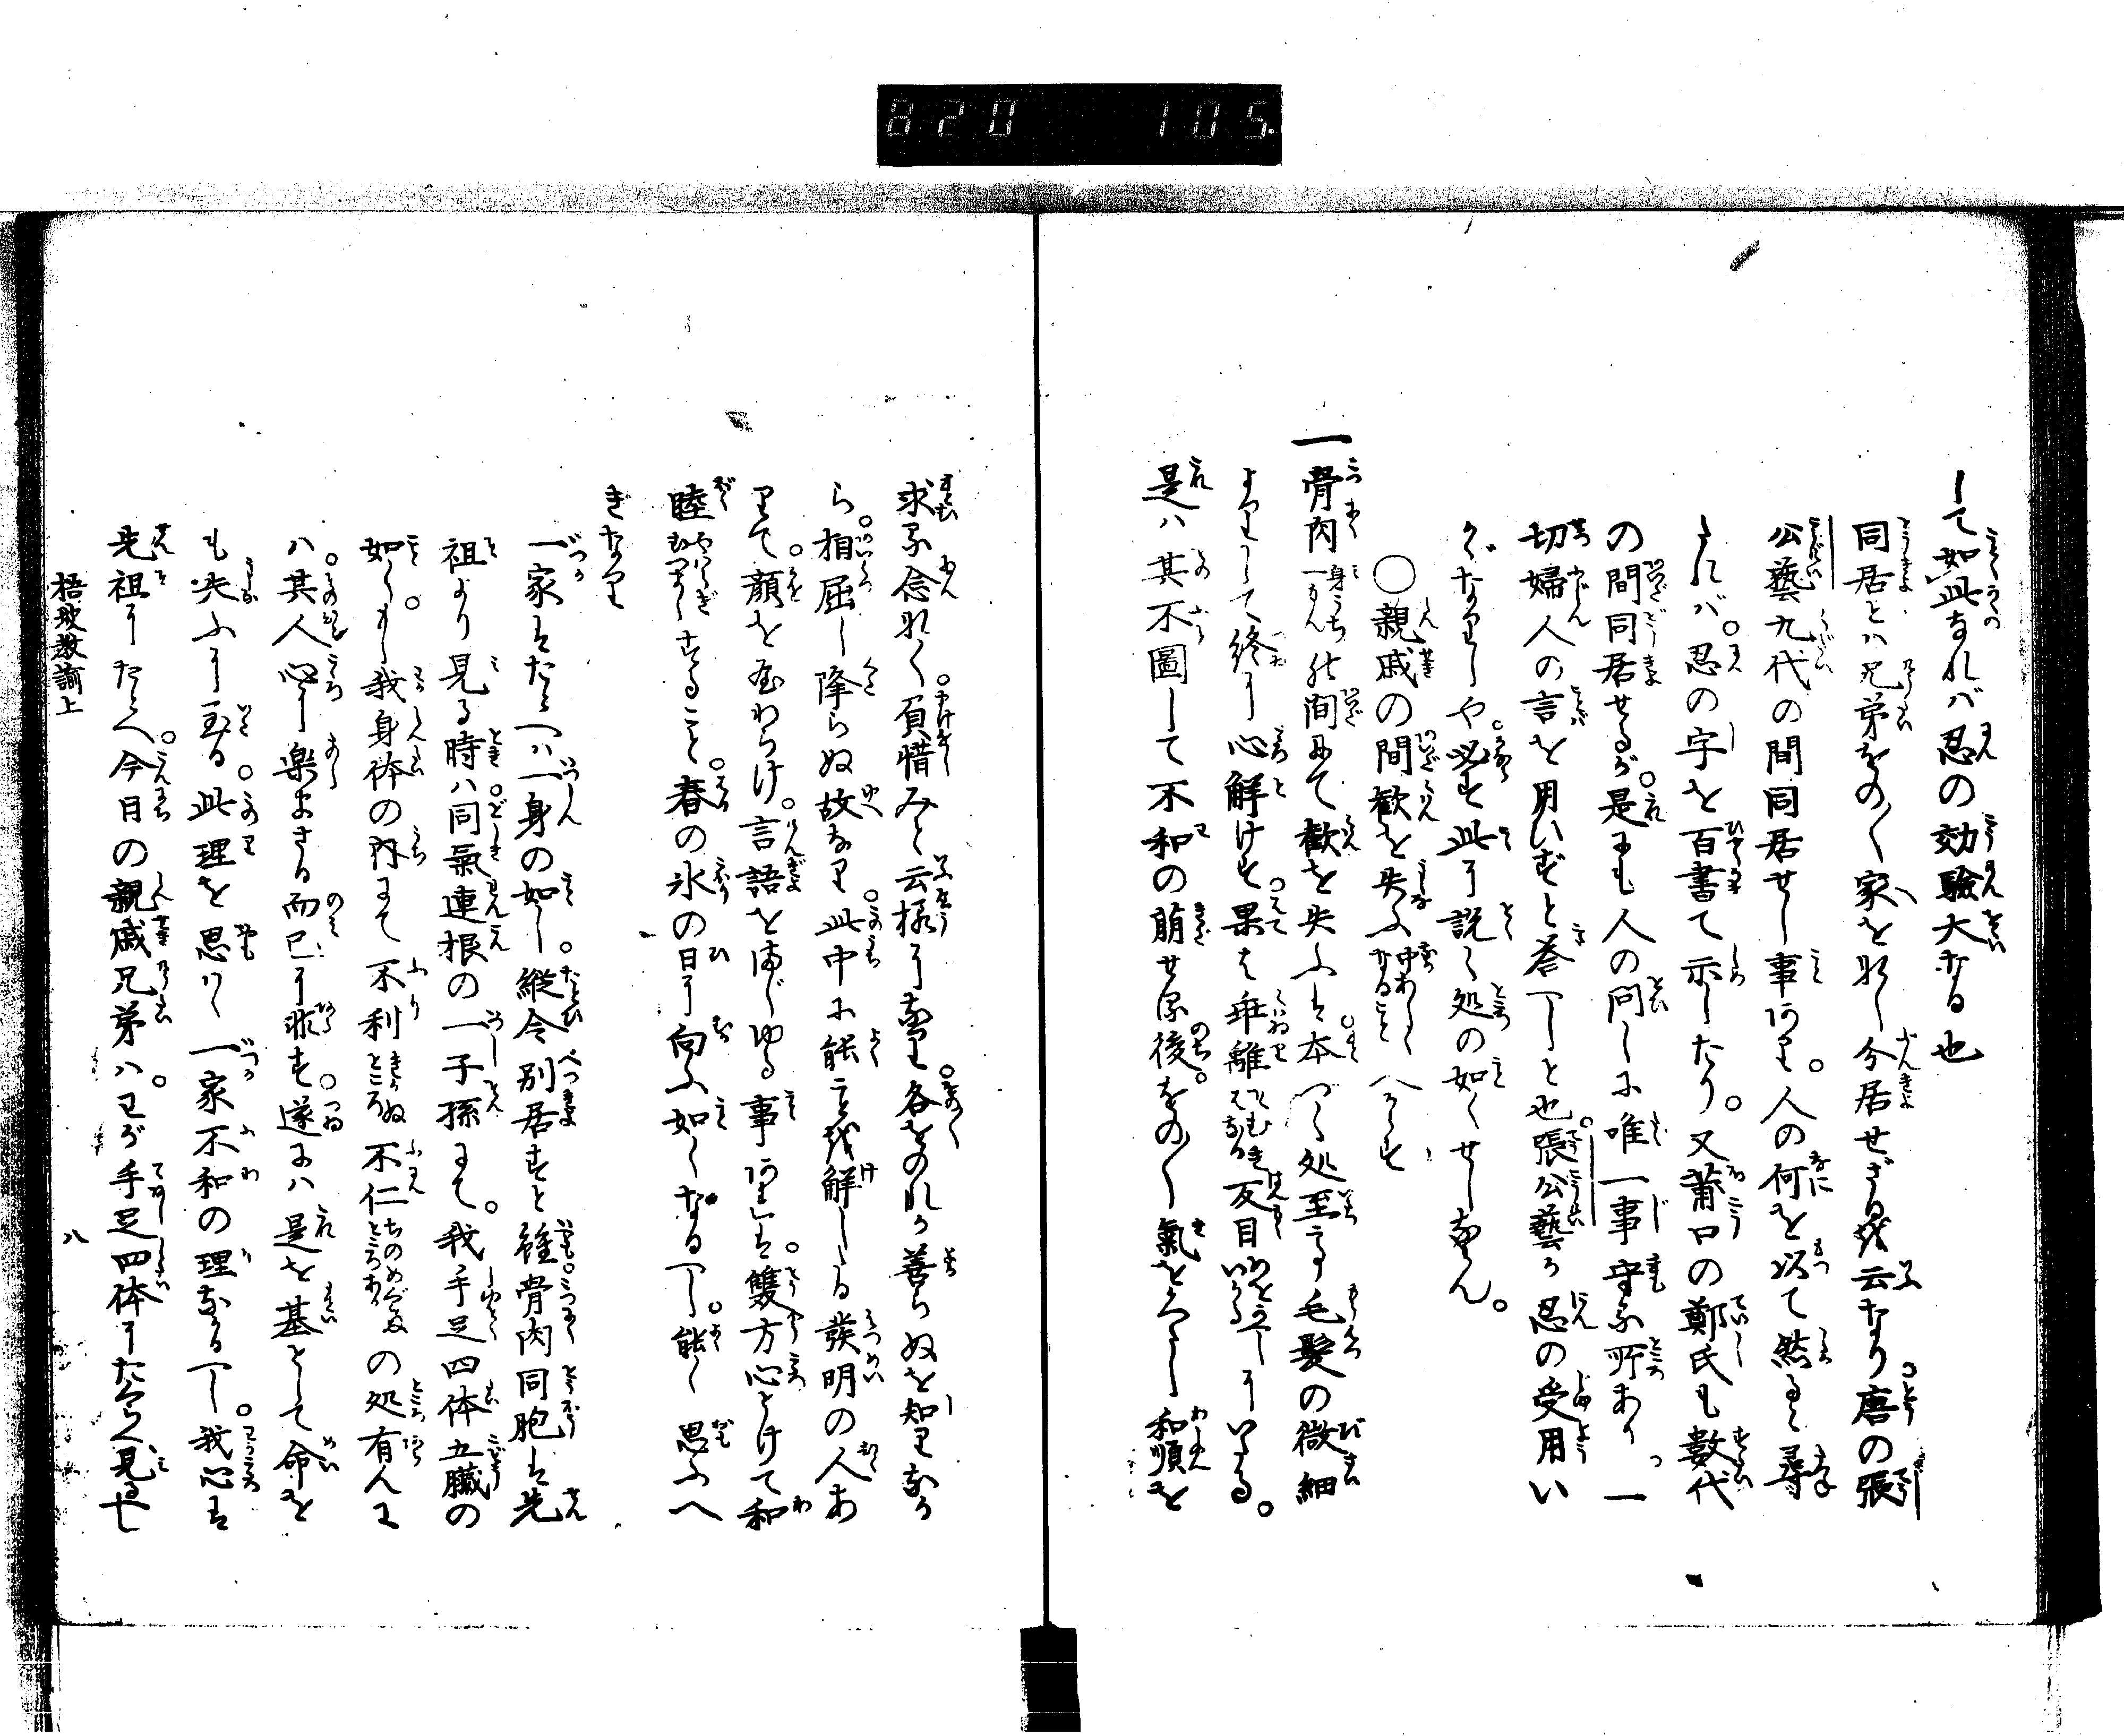 820 105.
して如此なれバ忍の効驗大なる也
同居とハ兄弟をの〱家を別し分居せざるを云なり唐の張
公藝九代の間同居せし事あり。人の何を以て然ると尋
けれバ。忍の字を百書て示したり。又莆口の鄭氏も数代
の間同居せるが。是にも人の問しに唯一事守る所あり一
切婦人の言を用いずと答へしと也。張公藝が忍の受用い
かゞなりしや。必ず此に説く処の如くせしならん。
〇親戚の間歡を失ふ
一骨肉の間にて歡を失ふは本づく処至て毛髪の微細
よりして終に心解けず果は乖離反目にいたる。
是ハ其不圖して不和の萠せる後をの〱氣をくだし和順を
求る念なく。負惜みと云様に成り。各をのれが善らぬを知りなが
ら。相屈し降らぬ故なり。此中に能き所を解したる發明の人あ
りて。顔を和らけ。言語をまじゆる事あれば。雙方心とけて和
睦すること。春の氷の日に向ふ如くなるべし。能く思ふべ
きなり
一家はたとへハ一身の如し。縦令別居すと雖。骨肉同胞は先
祖より見る時ハ。同氣連根の一子孫にて。我手足四体五臓の
如し。もし我身体の内にて不利不仁の処有んに
ハ。其人心に楽まざる而已に非ず。遂にハ是を基として命を
も失ふに至る。此理を思ハヾ一家不和の理なるべし。我心は
先祖にたとへ。今日の親戚兄弟ハ。わが手足四体にたとへ見る也
梧坡教諭上
八